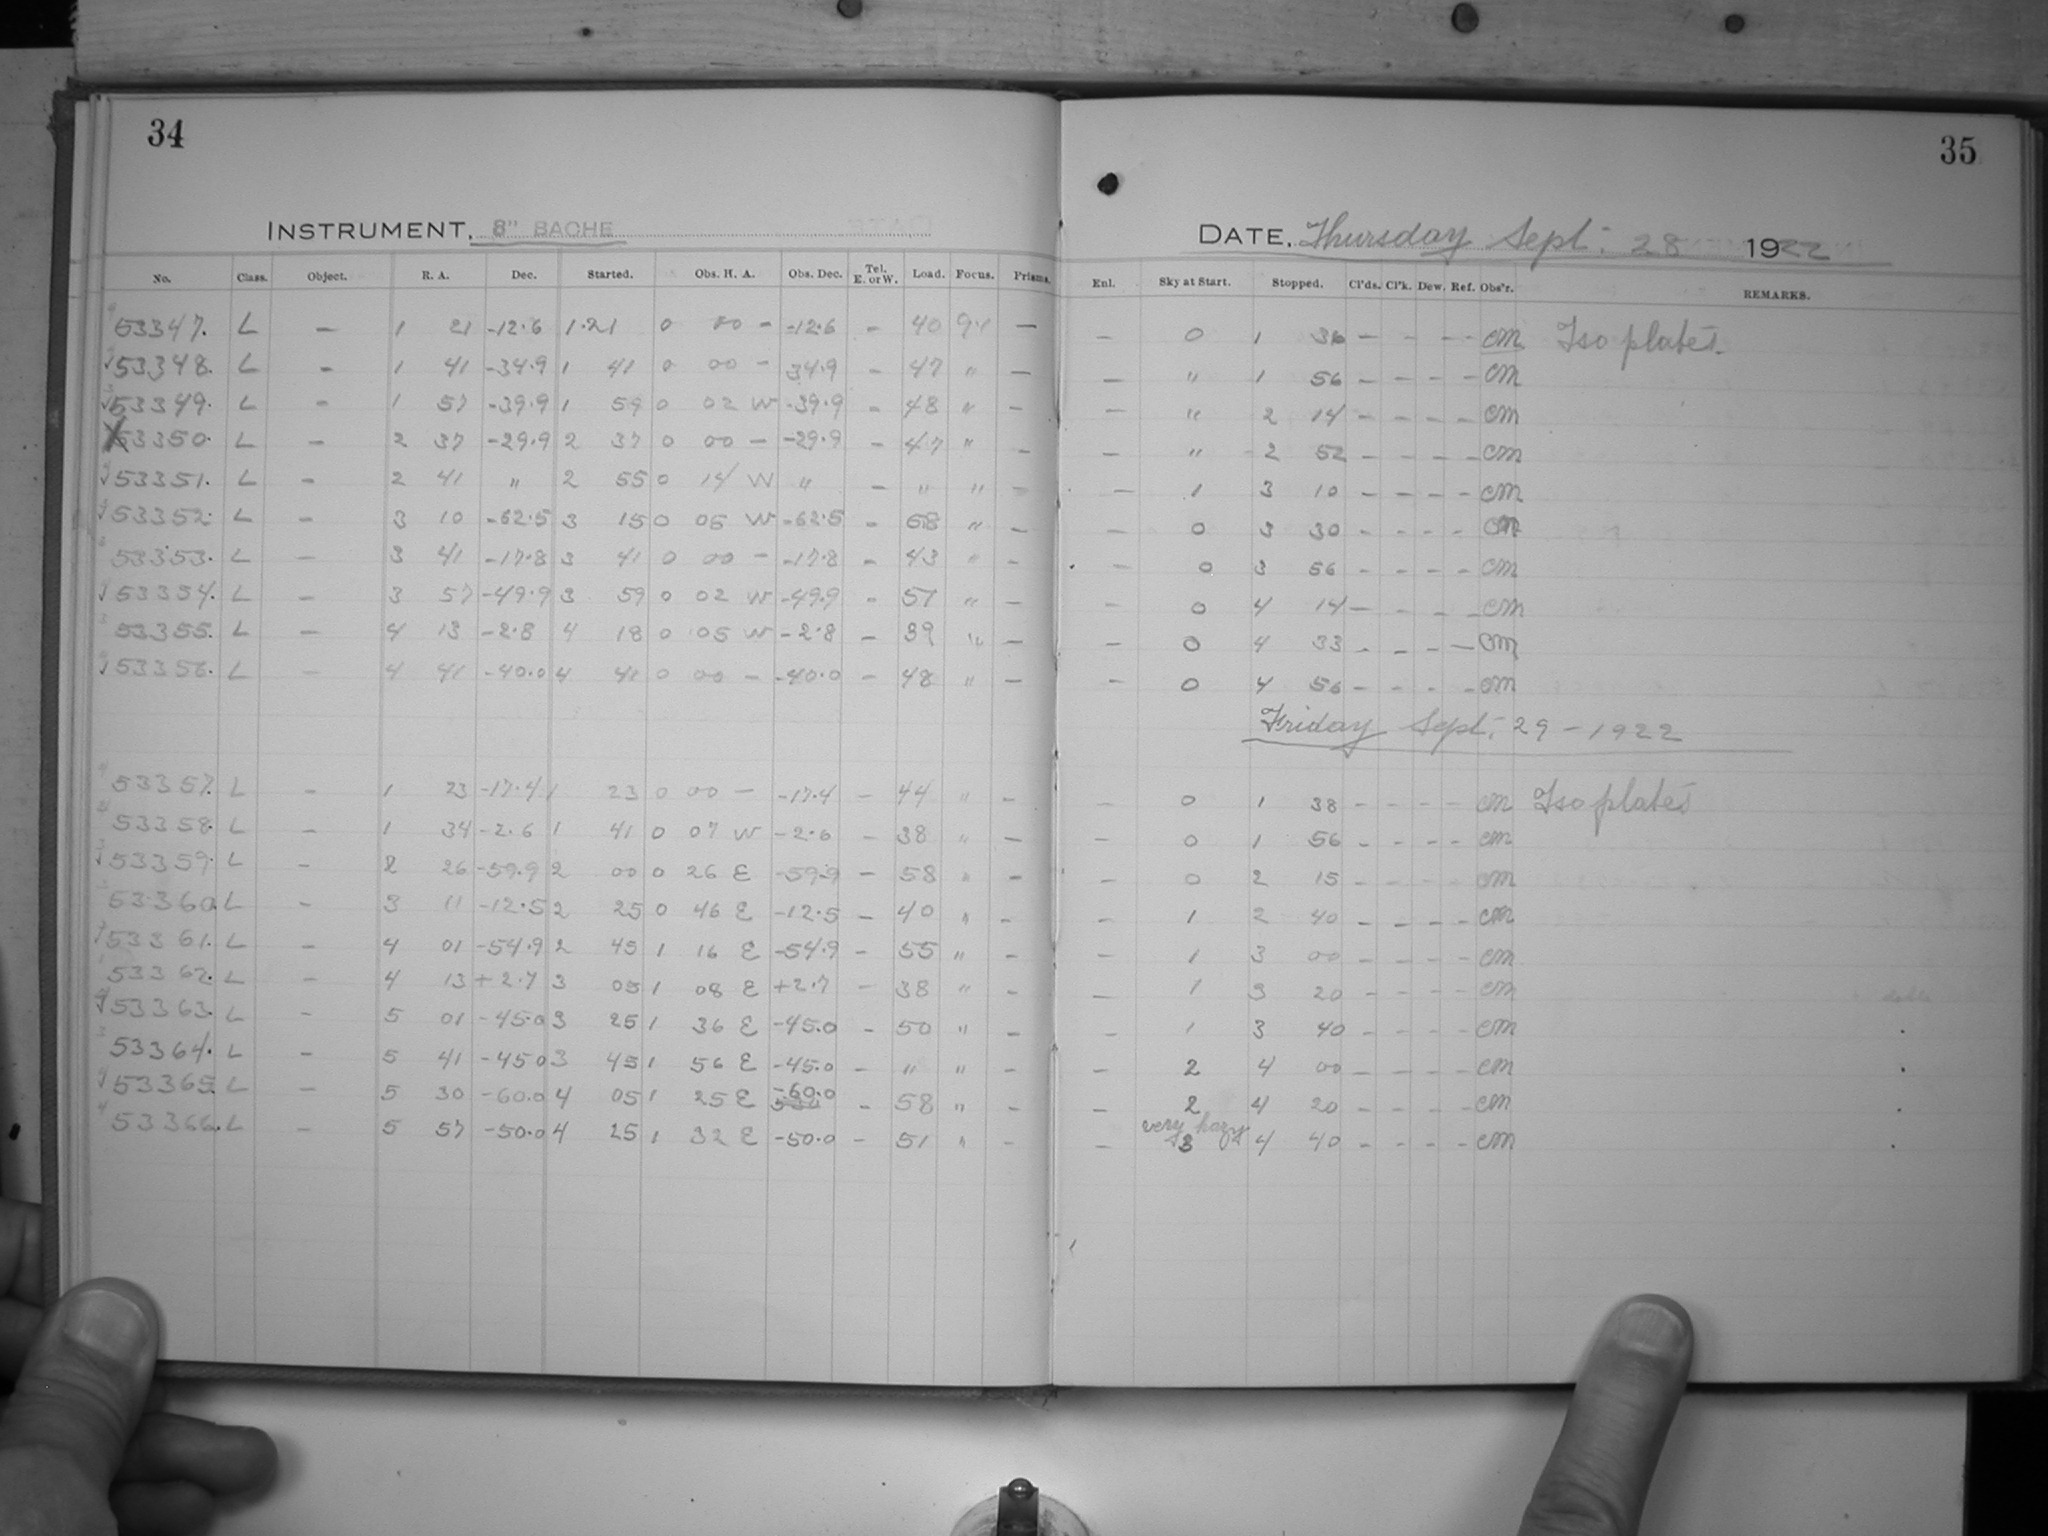 34
INSTRUMENT. 8" BACHE
No. Class. Object. R. A. Dec. Started. Obs. H. A. Obs. Dec. Tel. E. or W. Load. Focus. Prisms.
53347. L - 1 21 -12.6 1.21 0 00 - -12.6 - 40 9.1 -
53348. L - 1 41 -34.9 1 41 0 00 - 34.9 - 47 " -
53349. L - 1 57 -39.9 1 59 0 02 W -39.9 - 48 " -
53350. L - 2 37 -29.9 2 37 0 00 - -29.9 - 47 " -
53351. L - 2 41 " 2 55 0 14 W " - " " -
53352. L - 3 10 -62.5 3 15 0 05 W -62.5 - 58 " -
53353. L - 3 41 -17.8 3 41 0 00 - -17.8 - 43 " -
53354. L - 3 57 -49.9 3 59 0 02 W -49.9 - 51 " -
53355. L - 4 13 -2.8 4 18 0 05 W -2.8 - 39 " -
53356. L - 4 41 -40.0 4 41 0 00 - -40.0 - 48 " -
53357. L - 1 23 -17.4 1 23 0 00 - -17.4 - 44 " -
53358. L - 1 34 -2.6 1 41 0 07 W -2.6 - 38 " -
53359. L - 2 26 -59.9 2 00 0 26 E -59.9 - 58 " -
53360. L - 3 11 -12.5 2 25 0 46 E -12.5 - 40 " -
53361. L - 4 01 -54.9 2 45 1 16 E -54.9 - 55 " -
53362. L - 4 13 +2.7 3 05 1 08 E +2.7 - 38 " -
53363. L - 5 01 -45.0 3 25 1 36 E -45.0 - 50 " -
53364. L - 5 41 -45.0 3 45 1 56 E -45.0 - " " -
53365. L - 5 30 -60.0 4 05 1 25 E -60.0 - 58 " -
53366. L - 5 57 -50.0 4 25 1 32 E -50.0 - 51 " -
35
DATE. Thursday Sept. 28 1922
Enl. Sky at Start. Stopped. Cl'ds. Cl'k. Dew. Ref. Obs'r. REMARKS.
- 0 1 36 - - - - CM Iso plates.
- " 1 56 - - - - CM
- " 2 14 - - - - CM
- " 2 52 - - - - CM
- 1 3 10 - - - - CM
- 0 3 30 - - - - CM
- 0 3 56 - - - - CM
- 0 4 14 - - - - CM
- 0 4 33 - - - - CM
- 0 4 56 - - - - CM
Friday Sept. 29 - 1922
- 0 1 38 - - - - CM Iso plates
- 0 1 56 - - - - CM
- 0 2 15 - - - - CM
- 1 2 40 - - - - CM
- 1 3 00 - - - - CM
- 1 3 20 - - - - CM
- 1 3 40 - - - - CM
- 2 4 00 - - - - CM
- 2 4 20 - - - - CM
very hazy
- 3 4 40 - - - - CM